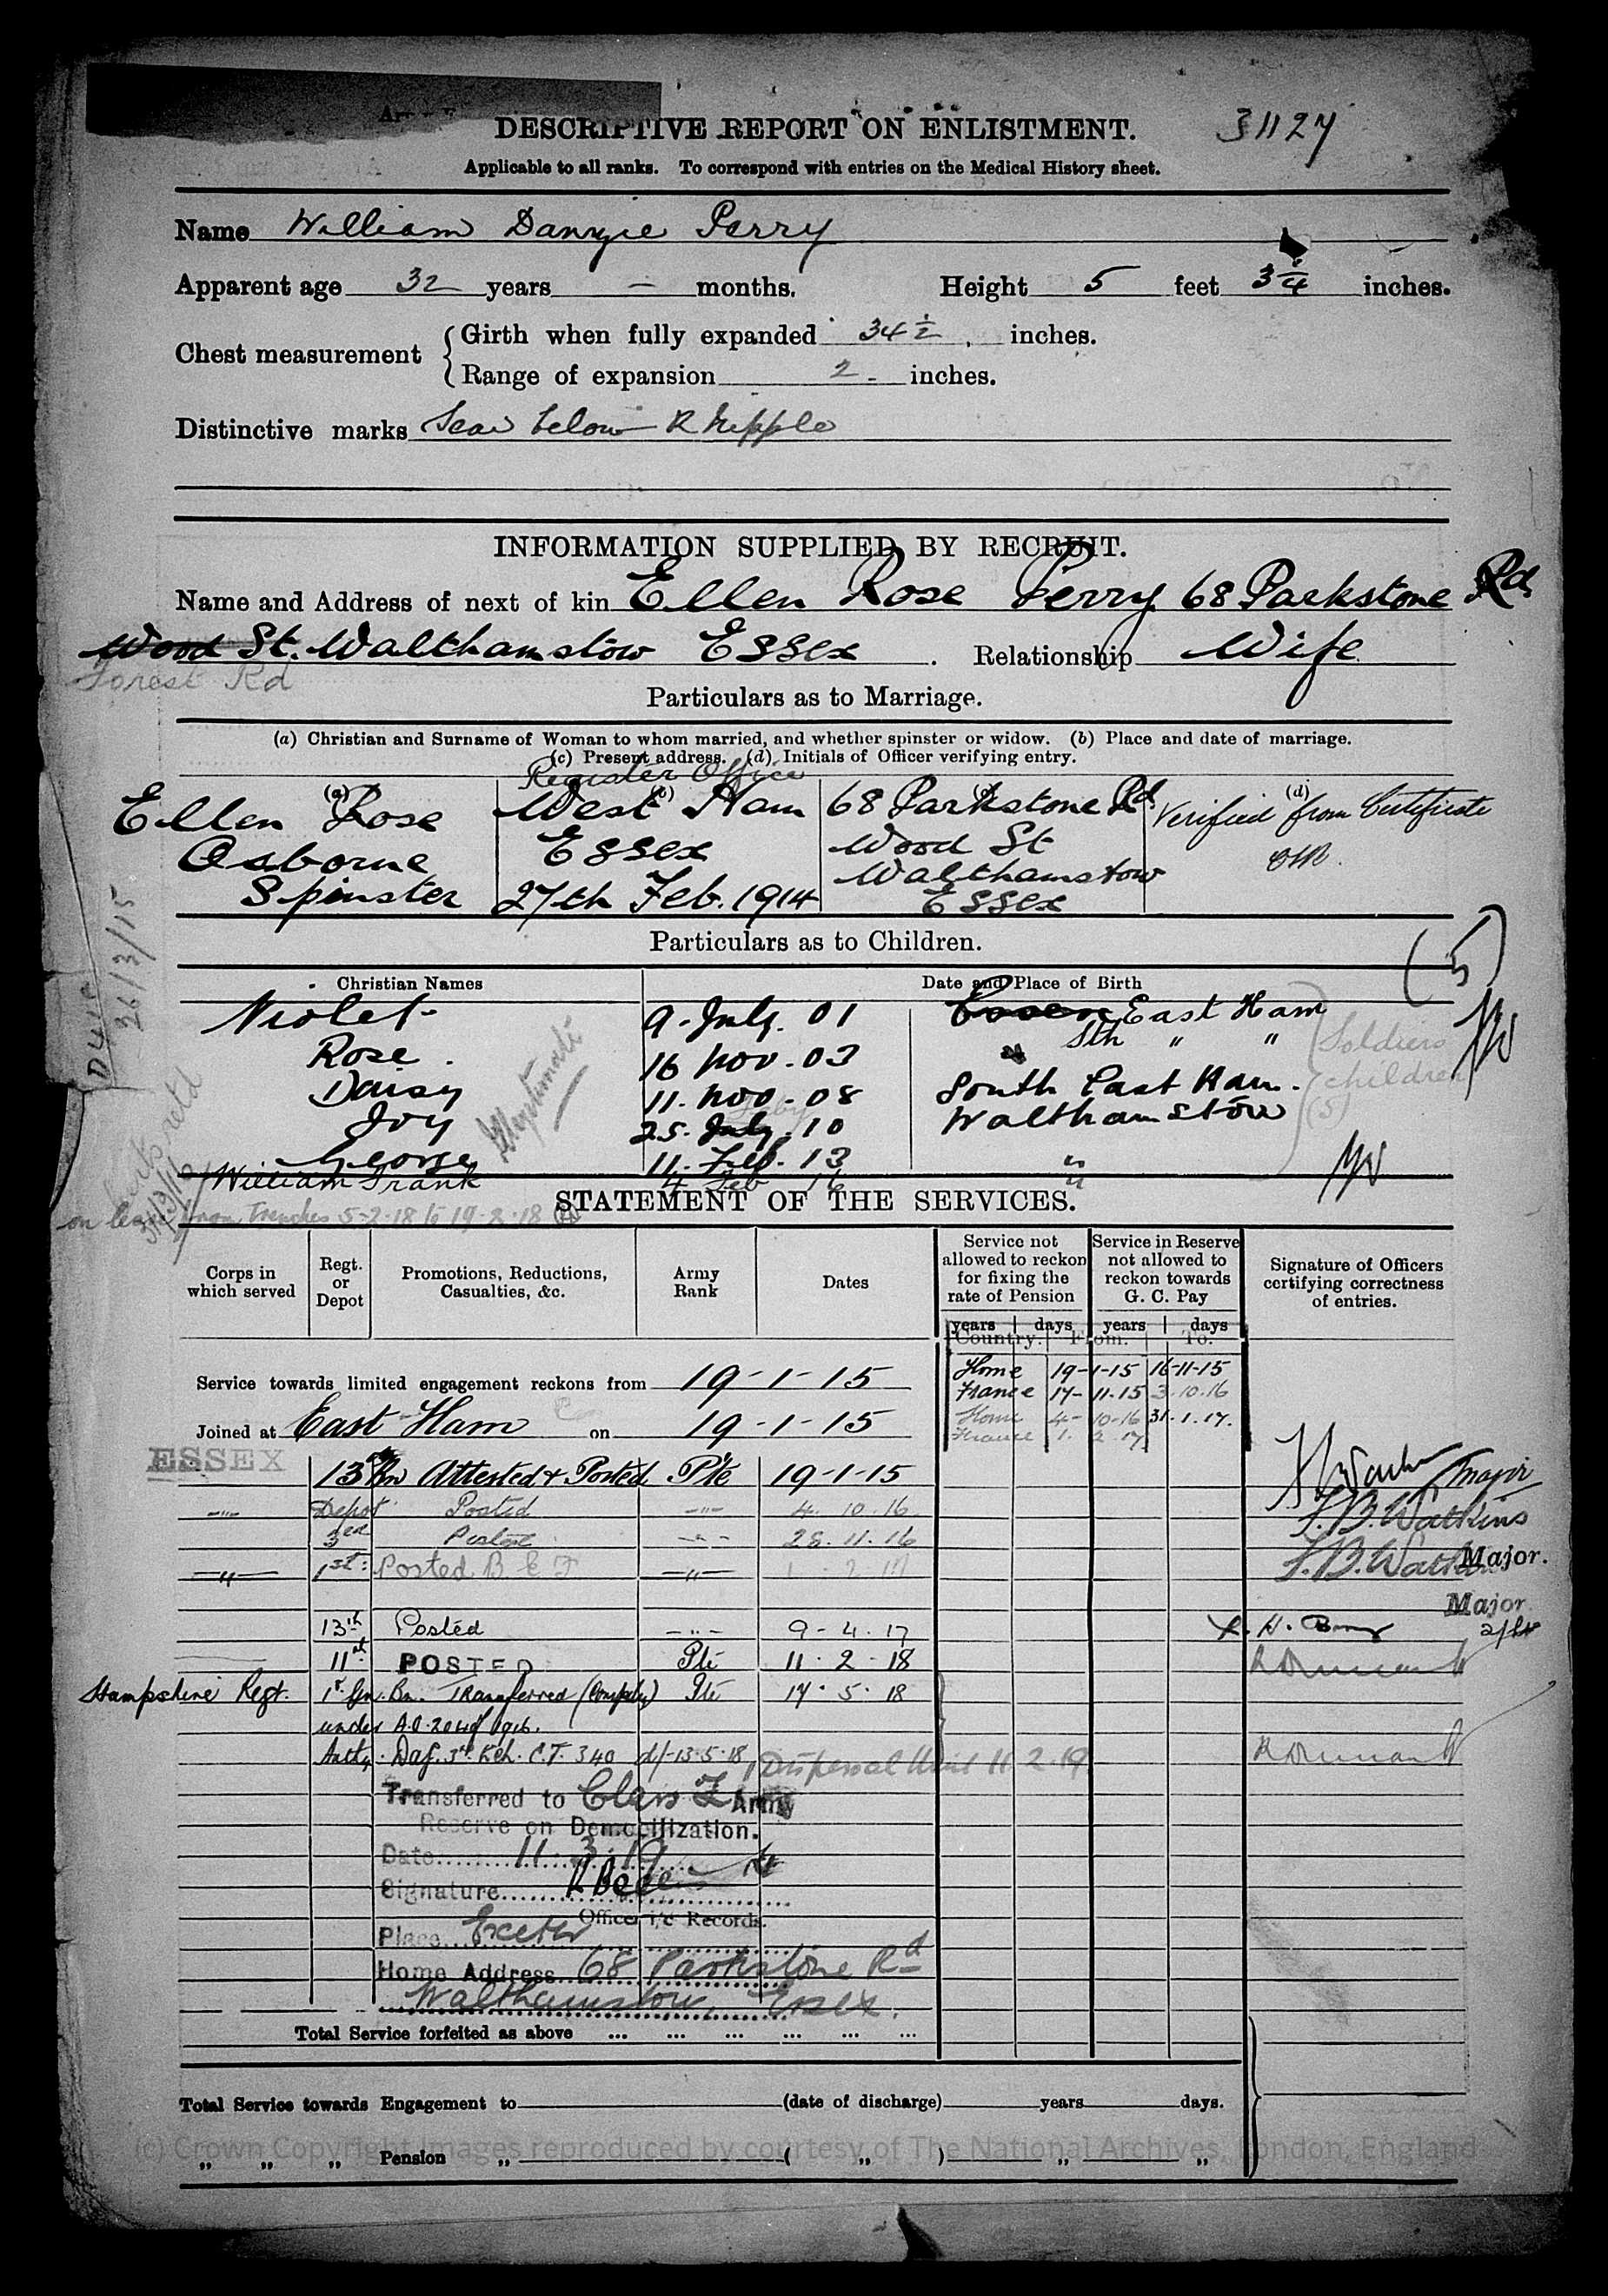 DESCRIPTIVE REPORT ON ENLISTMENT. 31127
Applicable to all ranks. To correspond with entries on the Medical History sheet.
Name William Perry
Apparent age 32 years — months. Height 5 feet 3 3/4 inches.
Chest measurement { Girth when fully expanded 34 1/2 inches.
Range of expansion 2 inches.
Distinctive marks Scar below R Nipple
INFORMATION SUPPLIED BY RECRUIT.
Name and Address of next of kin Ellen Rose Perry 68 Parkstone Rd
Wood St. Walthamstow Essex. Relationship Wife
Forest Rd
Particulars as to Marriage.
(a) Christian and Surname of Woman to whom married, and whether spinster or widow. (b) Place and date of marriage.
(c) Present address. (d) Initials of Officer verifying entry.
Register Office
(a) (b) (c) (d)
Ellen Rose West Ham 68 Parkstone Rd Verified from Certificate
Osborne Essex Wood St
Spinster 27th Feb. 1914 Walthamstow
Essex
26/3/15
Particulars as to Children.
(5)
Christian Names Date and Place of Birth
Violet 9 July. 01 East Ham
Rose. 16 Nov. 03 Sth " "
Daisy 11. Nov. 08 South East Ham.
Ivy 25. July. 10 Walthamstow
George 11. Feb. 13 "
William Frank 4 Feb 16 "
Illegitimate
Soldiers children (5)
STATEMENT OF THE SERVICES.
on leave from Trenches 5-2-18 to 19-2-18
Corps in which served
Regt. or Depot
Promotions, Reductions, Casualties, &c.
Army Rank
Dates
Service not allowed to reckon for fixing the rate of Pension
Service in Reserve not allowed to reckon towards G. C. Pay
Signature of Officers certifying correctness of entries.
years days years days
Country. From. To.
Service towards limited engagement reckons from 19-1-15
Home 19-1-15 16-11-15
France 17-11-15 3.10.16
Home 4-10-16 31.1.17.
France 1. 2 17
Joined at East Ham on 19-1-15
ESSEX
13th Bn Attested & Posted Pte 19-1-15 Major
—"— Depot Posted —"— 4. 10. 16 F.B. Watkins
3rd Posted —"— 28. 11. 16 F.B. Watkins Major.
—"— 1st: Posted B E F —"— 1 2 17
Major
13th Posted —"— 9-4-17
11th POSTED Pte 11. 2. 18
Hampshire Regt. 1st Gn. Bn. Transferred (Compulsy) Pte 17. 5. 18
under A.O. 204 of 1916.
Authy. Dag. 3rd Ech. C.T. 340 d/-13-5-18 Dispersal Unit 11 2.19
Transferred to Class Z Army
Reserve on Demobilization.
Date 11. 3. 19
Signature
Officer i/c Records.
Place Exeter
Home Address 68 Parkstone Rd
Walthamstow, Essex.
Total Service forfeited as above ... ... ... ... ... ...
Total Service towards Engagement to (date of discharge) years days.
" " " Pension " ( " ) " "
(c) Crown Copyright Images reproduced by courtesy of The National Archives, London, England